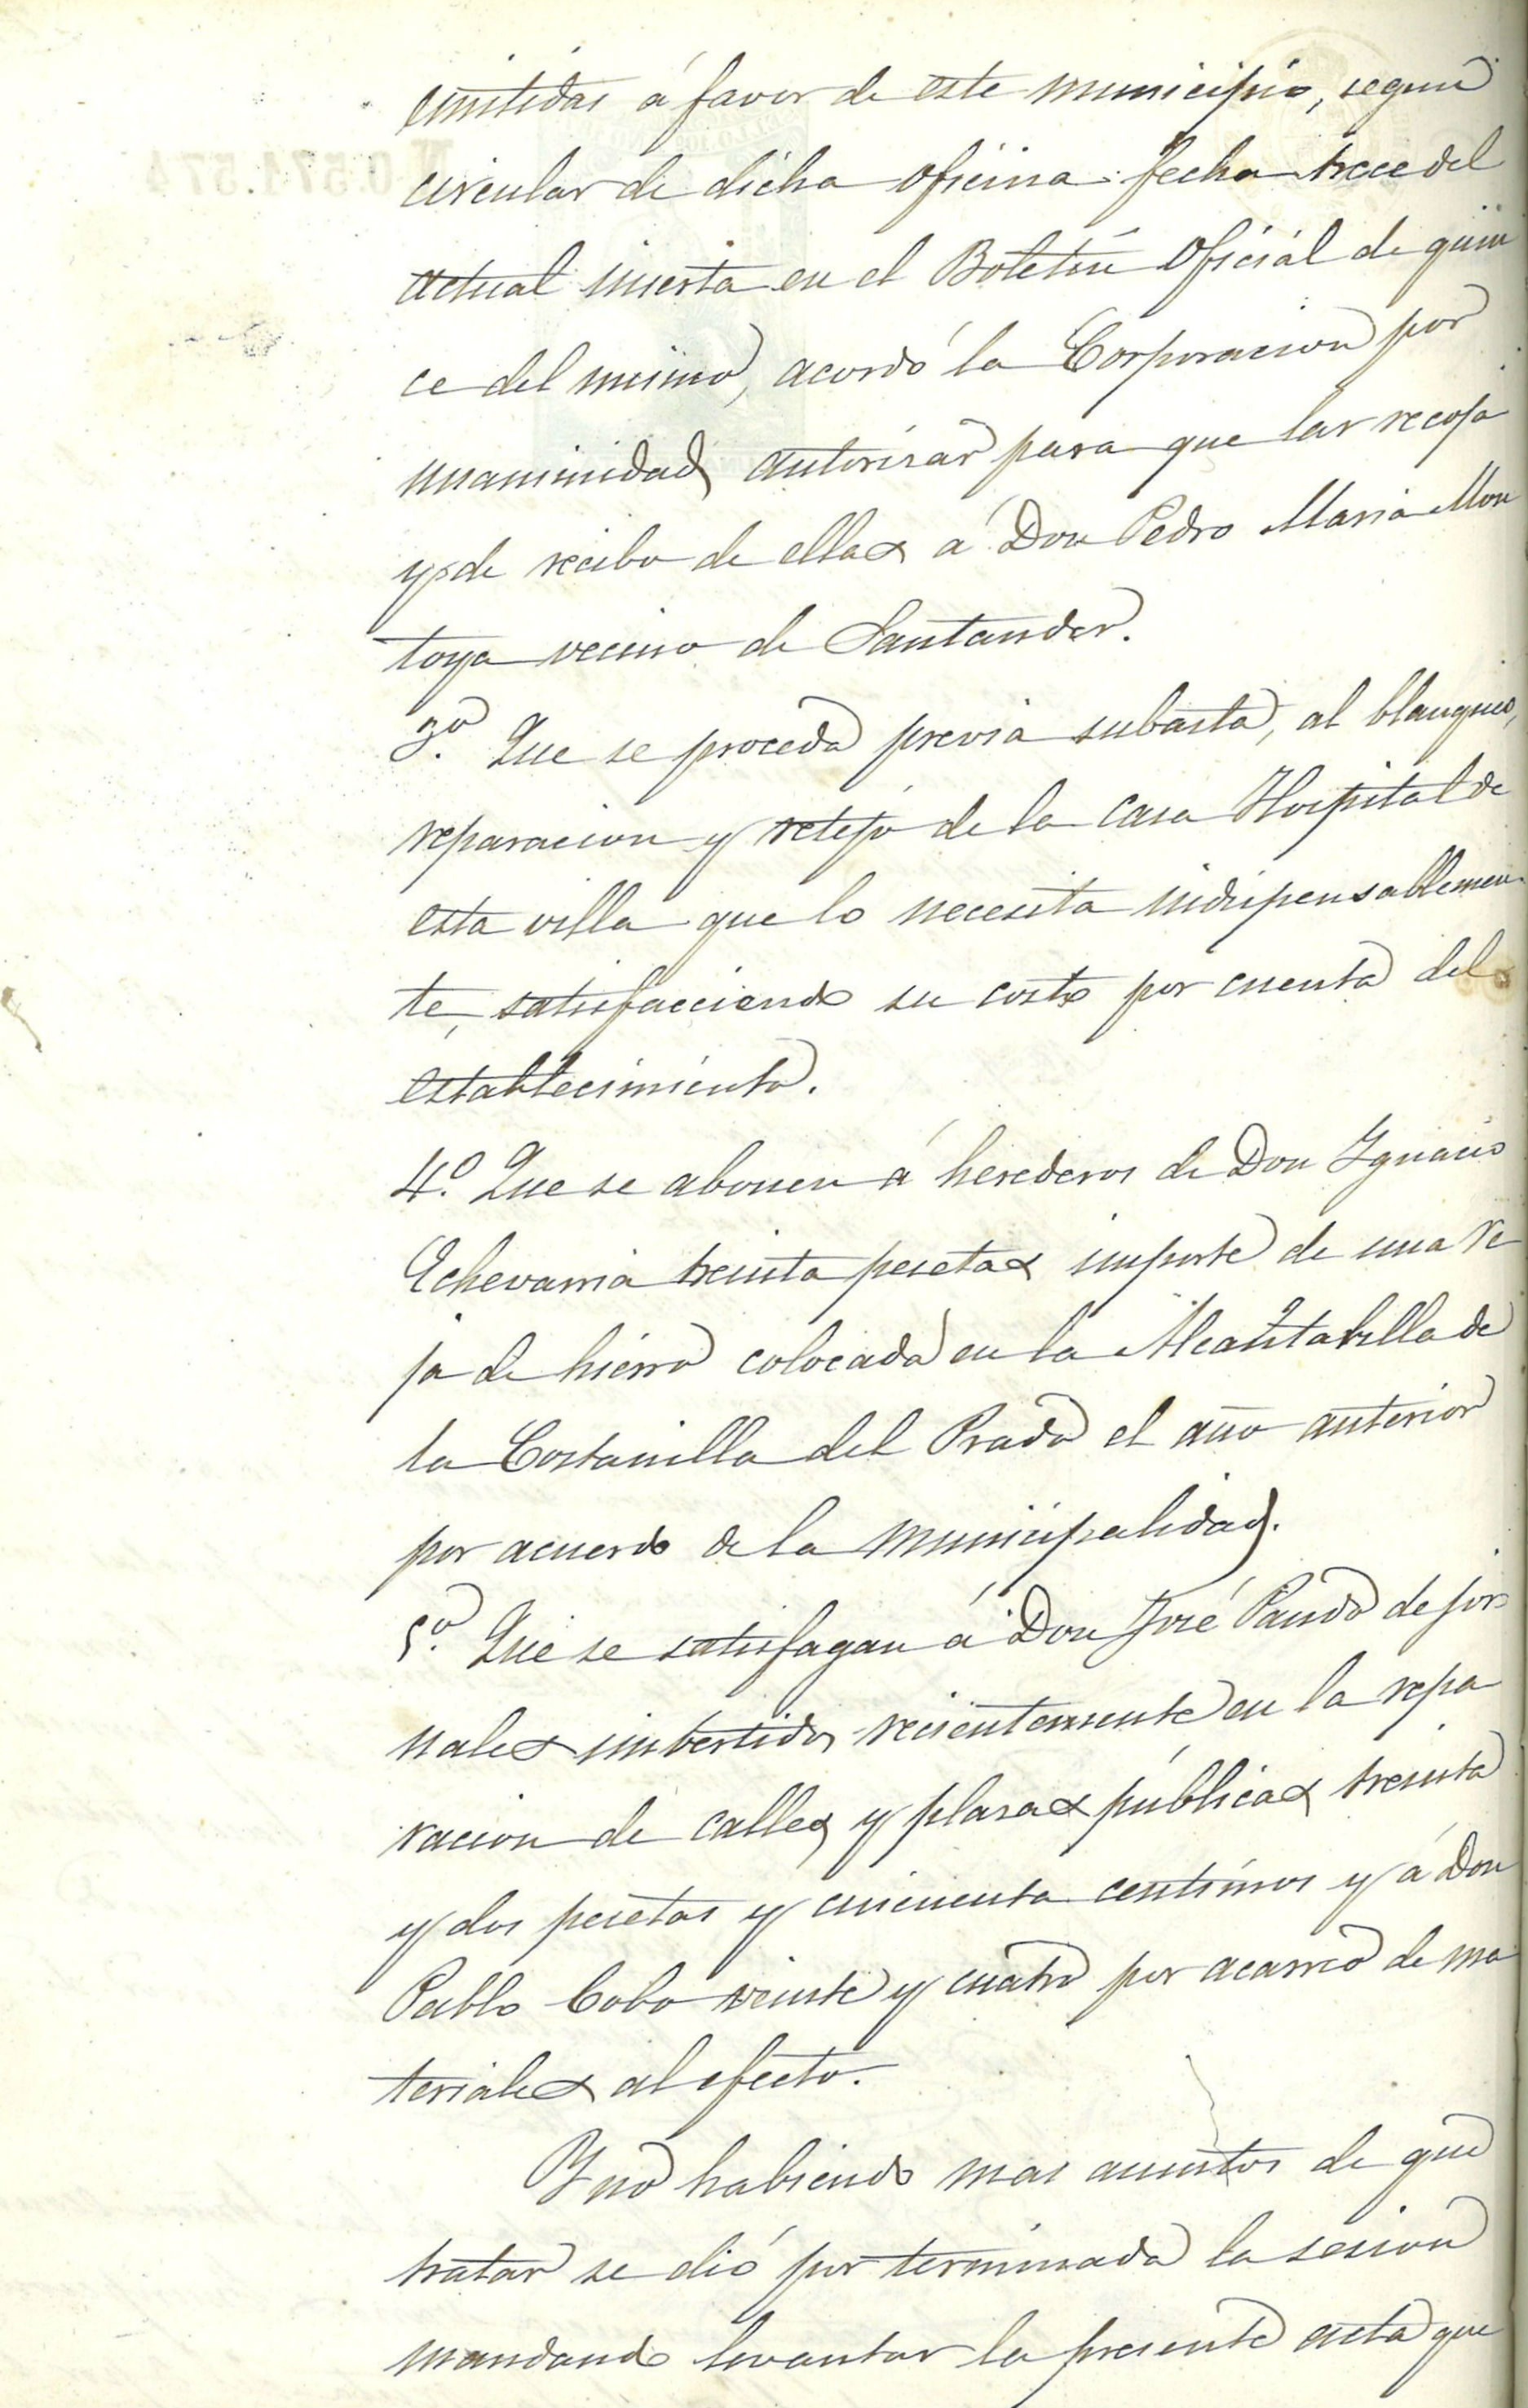 emitidas á favor de este municipio, segun
circular de dicha oficina fecha trece del
actual inserta en el Boletin Oficial de quin
ce del mismo, acordó la Corporacion por
unaminidad autorisar para que las recoja
y de recibo de ellas á Don Pedro Maria Mon
toya vecino de Santander.
3º. Que se proceda previa subasta, al blanqueo,
reparacion y retejo de la casa Hospital de
esta villa que lo necesita indispensablemen-
te, satisfacciendo su costo por cuenta del
establecimiento.
4º. Que se abonen á herederos de Don Ygnacio
Echevarria treinta pesetas importe de una re
ja de hierro colocada en la Alcantarilla de
la Costanilla del Prado el año anterior
por acuerdo de la municipalidad.
5º. Que se satisfagan á Don José Pando de jor
nales imbertidos recientemente en la repa
racion de calles y plasas públicas treinta
y dos pesetas y cincuenta centimos y á Don
Pablo Cobo veinte y cuatro por acarreo de ma
teriales al efecto.
Y no habiendo mas asuntos de que
tratar se dió por terminada la sesion
mandando levantar la presente acta que
N0.571.574